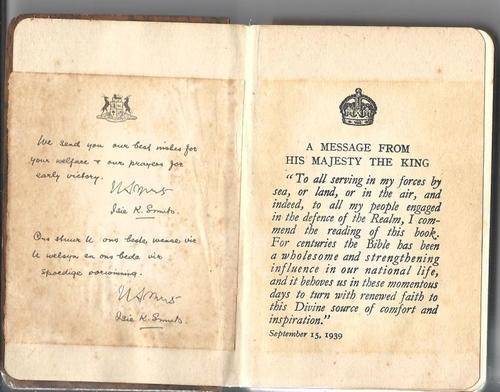 We send you our best wishes for
your welfare & our prayers for
early victory.
Isie K. Smuts.
Ons stuur U ons beste wense vir
U welsyn en ons bede vir
spoedige oorwinning.
Isie K. Smuts
A MESSAGE FROM
HIS MAJESTY THE KING
"To all serving in my forces by
sea, or land, or in the air, and
indeed, to all my people engaged
in the defence of the Realm, I com-
mend the reading of this book.
For centuries the Bible has been
a wholesome and strengthening
influence in our national life,
and it behoves us in these momentous
days to turn with renewed faith to
this Divine source of comfort and
inspiration."
September 15, 1939